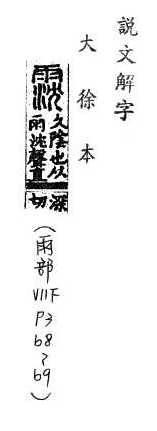 説文解字
大徐本
霃 久陰也从
雨沈聲直
深
切
(雨部 VII下 P368~69)